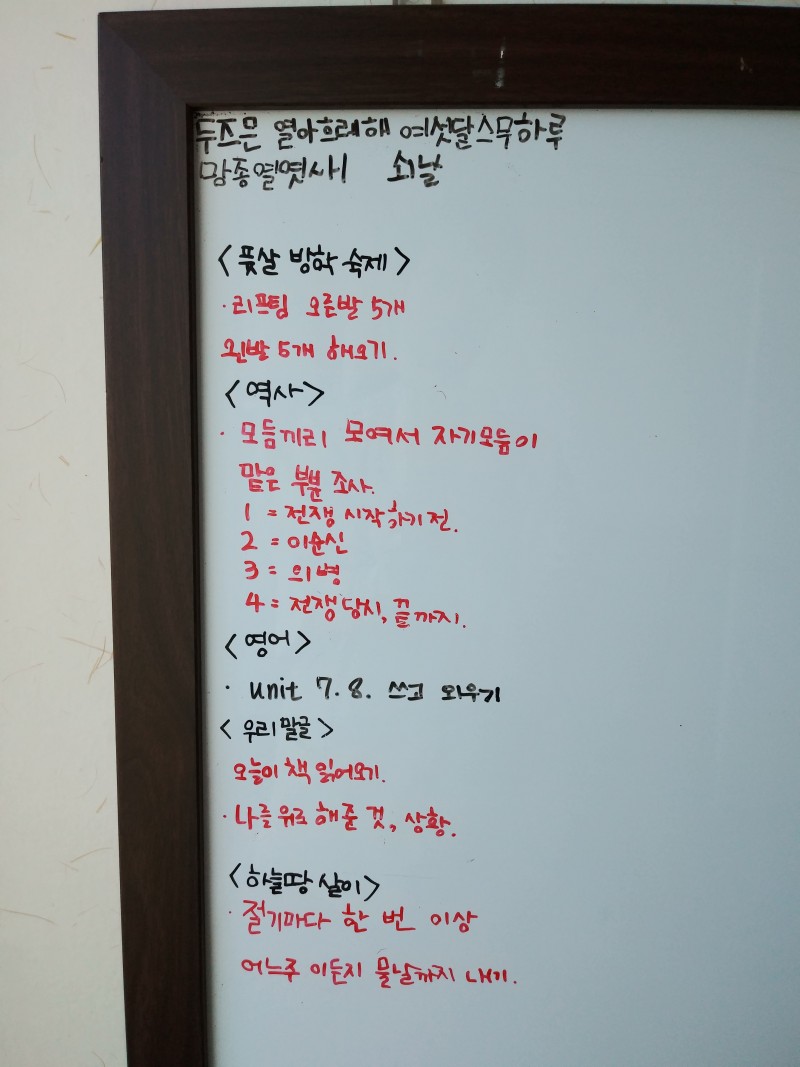 두즈믄 열아흐레해 여섯달스무하루
맘종열엿사니 쇠날
<풋살 방학 숙제>
· 리프팅 오른발 5개
왼발 5개 해오기.
<역사>
· 모둠끼리 모여서 자기모둠이
맡은 부분 조사.
1 = 전쟁 시작하기 전.
2 = 이순신
3 = 의병
4 = 전쟁 당시, 끝까지.
<영어>
· unit 7. 8. 쓰고 외우기
<우리말글>
오늘이 책 읽어오기.
· 나를 위로 해준 것, 상황.
<하늘땅 살이>
· 절기마다 한 번 이상
어느주 이든지 물날까지 내기.